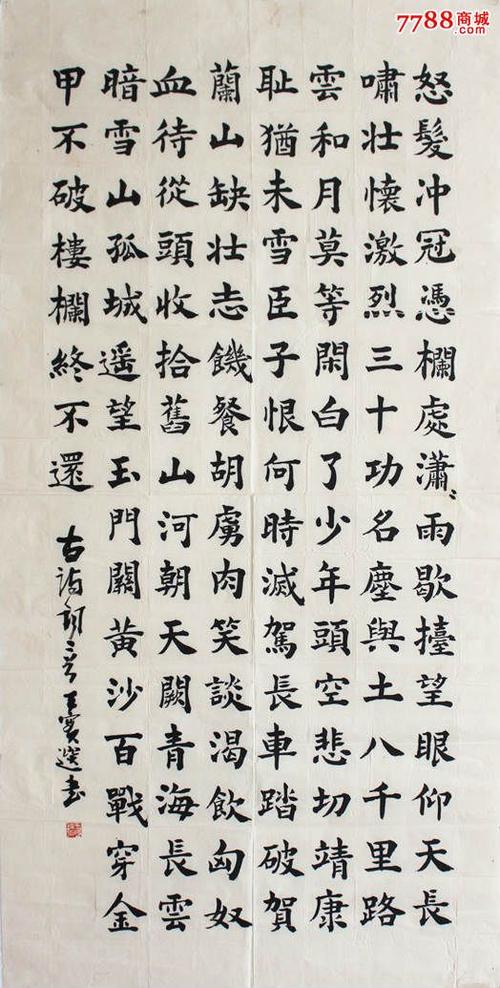 7788商城
怒髮冲冠憑欄處瀟〻雨歇擡望眼仰天長
嘯壯懷激烈三十功名塵與土八千里路
雲和月莫等閑白了少年頭空悲切靖康
耻猶未雪臣子恨何時滅駕長車踏破賀
蘭山缺壯志饑餐胡虜肉笑談渴飲匈奴
血待從頭收拾舊山河朝天闕青海長雲
暗雪山孤城遥望玉門關黄沙百戰穿金
甲不破樓欄終不還
古詩詞二首王寶選书